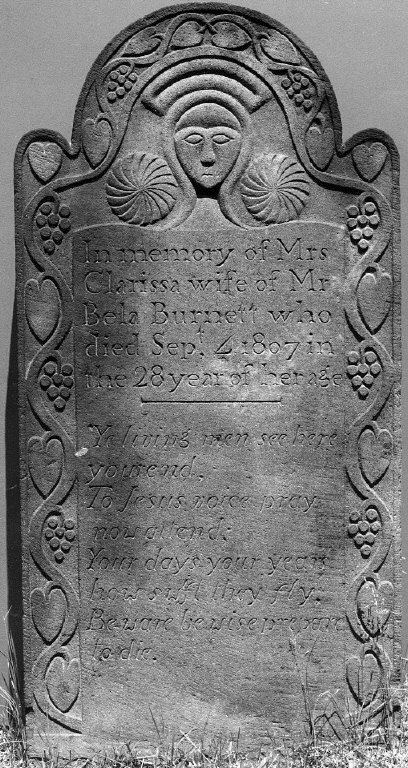 In memory of Mrs
Clarissa wife of Mr
Bela Burnett who
died Sept. 4 1807 in
the 28 year of her age
Ye living men see here
your end,
To Jesus voice pray
now attend:
Your days your years
how swift they fly,
Beware be wise prepare
to die.